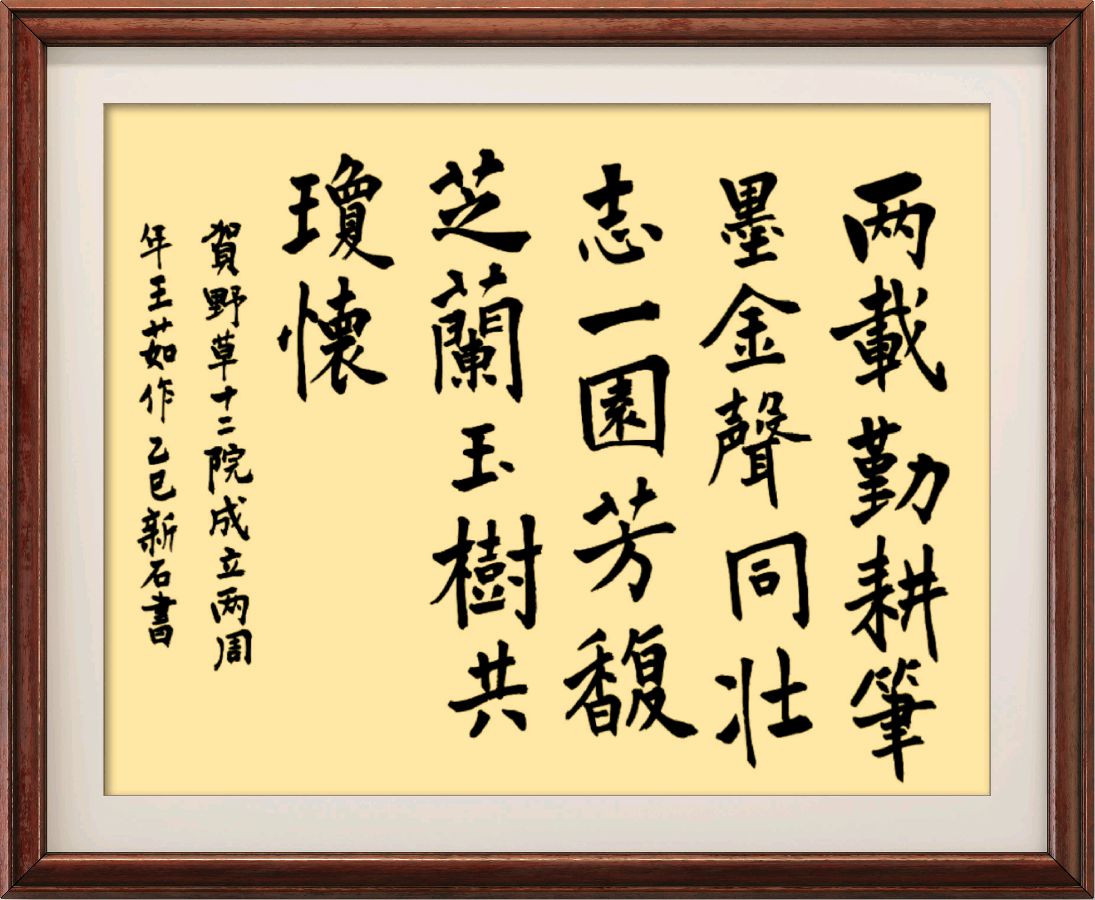 两載勤耕筆
墨金聲同壯
志一園芳馥
芝蘭玉樹共
瓊懷
賀野草十二院成立两周
年王茹作乙巳新石書